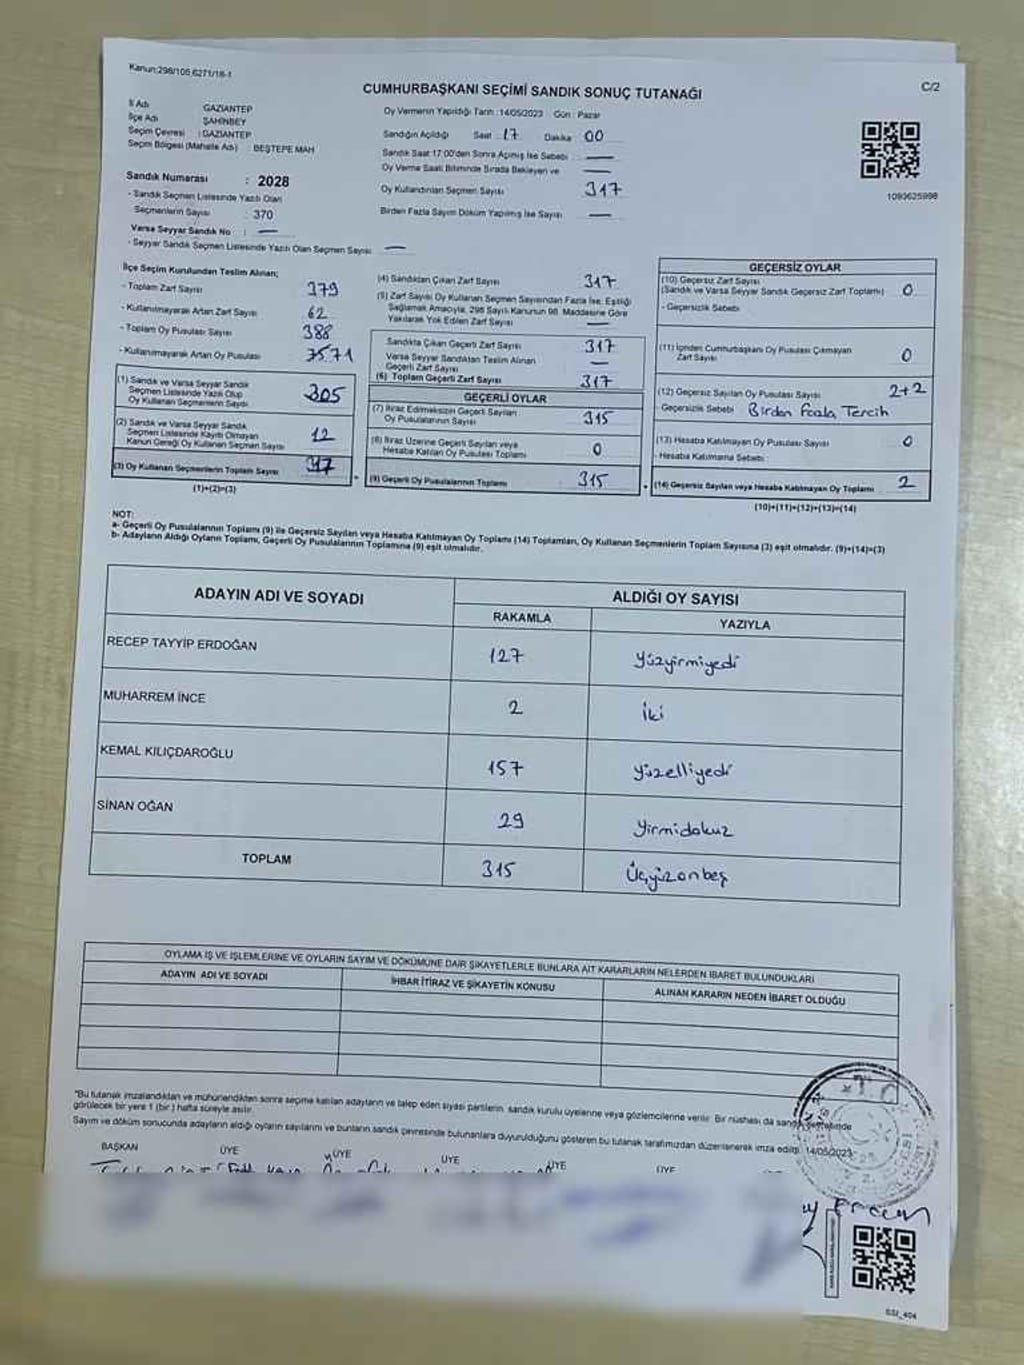 Kanun:298/105,6271/18-1
CUMHURBAŞKANI SEÇİMİ SANDIK SONUÇ TUTANAĞI
C/2
İl Adı GAZİANTEP
İlçe Adı ŞAHİNBEY
Seçim Çevresi : GAZİANTEP
Seçim Bölgesi (Mahalle Adı) : BEŞTEPE MAH
Sandık Numarası : 2028
- Sandık Seçmen Listesinde Yazılı Olan
Seçmenlerin Sayısı : 370
Varsa Seyyar Sandık No : —
- Seyyar Sandık Seçmen Listesinde Yazılı Olan Seçmen Sayısı —
Oy Vermenin Yapıldığı Tarih :14/05/2023 Gün : Pazar
Sandığın Açıldığı Saat 17 Dakika 00
Sandık Saat 17:00'den Sonra Açılmış İse Sebebi —
Oy Verme Saati Bitiminde Sırada Bekleyen ve —
Oy Kullandırılan Seçmen Sayısı 317
Birden Fazla Sayım Döküm Yapılmış İse Sayısı —
1093625998
İlçe Seçim Kurulundan Teslim Alınan;
- Toplam Zarf Sayısı 379
- Kullanılmayarak Artan Zarf Sayısı 62
- Toplam Oy Pusulası Sayısı 388
- Kullanılmayarak Artan Oy Pusulası 71
(1) Sandık ve Varsa Seyyar Sandık
Seçmen Listesinde Yazılı Olup
Oy Kullanan Seçmenlerin Sayısı 305
(2) Sandık ve Varsa Seyyar Sandık
Seçmen Listesinde Kayıtlı Olmayan
Kanun Gereği Oy Kullanan Seçmen Sayısı 12
(3) Oy Kullanan Seçmenlerin Toplam Sayısı 317
(1)+(2)=(3)
(4) Sandıktan Çıkan Zarf Sayısı 317
(5) Zarf Sayısı Oy Kullanan Seçmen Sayısından Fazla İse, Eşitliği
Sağlamak Amacıyla, 298 Sayılı Kanunun 98. Maddesine Göre
Yakılarak Yok Edilen Zarf Sayısı —
Sandıkta Çıkan Geçerli Zarf Sayısı 317
Varsa Seyyar Sandıktan Teslim Alınan
Geçerli Zarf Sayısı —
(6) Toplam Geçerli Zarf Sayısı 317
GEÇERLİ OYLAR
(7) İtiraz Edilmeksizin Geçerli Sayılan
Oy Pusulalarının Sayısı 315
(8) İtiraz Üzerine Geçerli Sayılan veya
Hesaba Katılan Oy Pusulası Toplamı 0
(9) Geçerli Oy Pusulalarının Toplamı 315
GEÇERSİZ OYLAR
(10) Geçersiz Zarf Sayısı
(Sandık ve Varsa Seyyar Sandık Geçersiz Zarf Toplamı) 0
- Geçersizlik Sebebi
(11) İçinden Cumhurbaşkanı Oy Pusulası Çıkmayan
Zarf Sayısı 0
(12) Geçersiz Sayılan Oy Pusulası Sayısı 2+2
- Geçersizlik Sebebi Birden Fazla Tercih
(13) Hesaba Katılmayan Oy Pusulası Sayısı 0
- Hesaba Katılmama Sebebi :
(14) Geçersiz Sayılan veya Hesaba Katılmayan Oy Toplamı 2
(10)+(11)+(12)+(13)=(14)
NOT:
a- Geçerli Oy Pusulalarının Toplamı (9) ile Geçersiz Sayılan veya Hesaba Katılmayan Oy Toplamı (14) Toplamları, Oy Kullanan Seçmenlerin Toplam Sayısına (3) eşit olmalıdır. (9)+(14)=(3)
b- Adayların Aldığı Oyların Toplamı, Geçerli Oy Pusulalarının Toplamına (9) eşit olmalıdır.
ADAYIN ADI VE SOYADI ALDIĞI OY SAYISI
RAKAMLA YAZIYLA
RECEP TAYYİP ERDOĞAN 127 Yüzyirmiyedi
MUHARREM İNCE 2 İki
KEMAL KILIÇDAROĞLU 157 Yüzelliyedi
SİNAN OĞAN 29 Yirmidokuz
TOPLAM 315 Üçyüzonbeş
OYLAMA İŞ VE İŞLEMLERİNE VE OYLARIN SAYIM VE DÖKÜMÜNE DAİR ŞİKAYETLERLE BUNLARA AİT KARARLARIN NELERDEN İBARET BULUNDUKLARI
ADAYIN ADI VE SOYADI İHBAR İTİRAZ VE ŞİKAYETİN KONUSU ALINAN KARARIN NEDEN İBARET OLDUĞU
*Bu tutanak imzalandıktan ve mühürlendikten sonra seçime katılan adayların ve talep eden siyasi partilerin, sandık kurulu üyelerine veya gözlemcilerine verilir. Bir nüshası da sandık
görülecek bir yere 1 (bir ) hafta süreyle asılır.
Sayım ve döküm sonucunda adayların aldığı oyların sayılarını ve bunların sandık çevresinde bulunanlara duyurulduğunu gösteren bu tutanak tarafımızdan düzenlenerek imza edildi. 14/05/2023
BAŞKAN ÜYE ÜYE ÜYE ÜYE ÜYE
T.C.